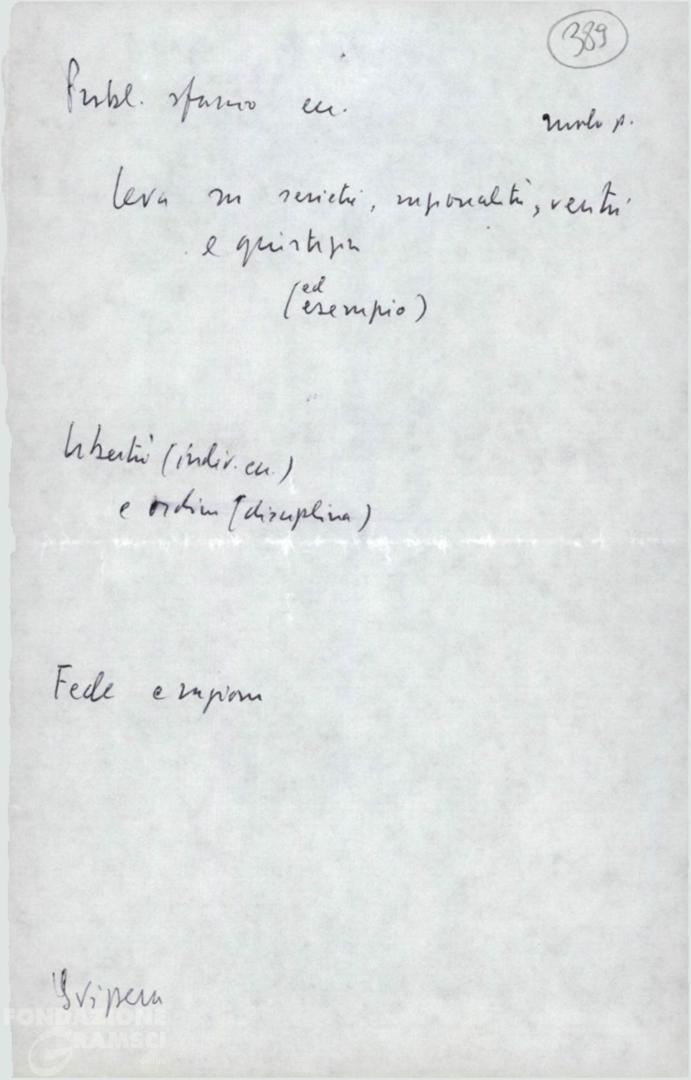 389
Pubbl. sfarzo ecc.
ruolo p.
Leva su serietà, razionalità, verità
e giustizia
(ed esempio)
Libertà (indiv. ecc.)
e ordine (disciplina)
Fede e ragione
FONDAZIONE
GRAMSCI